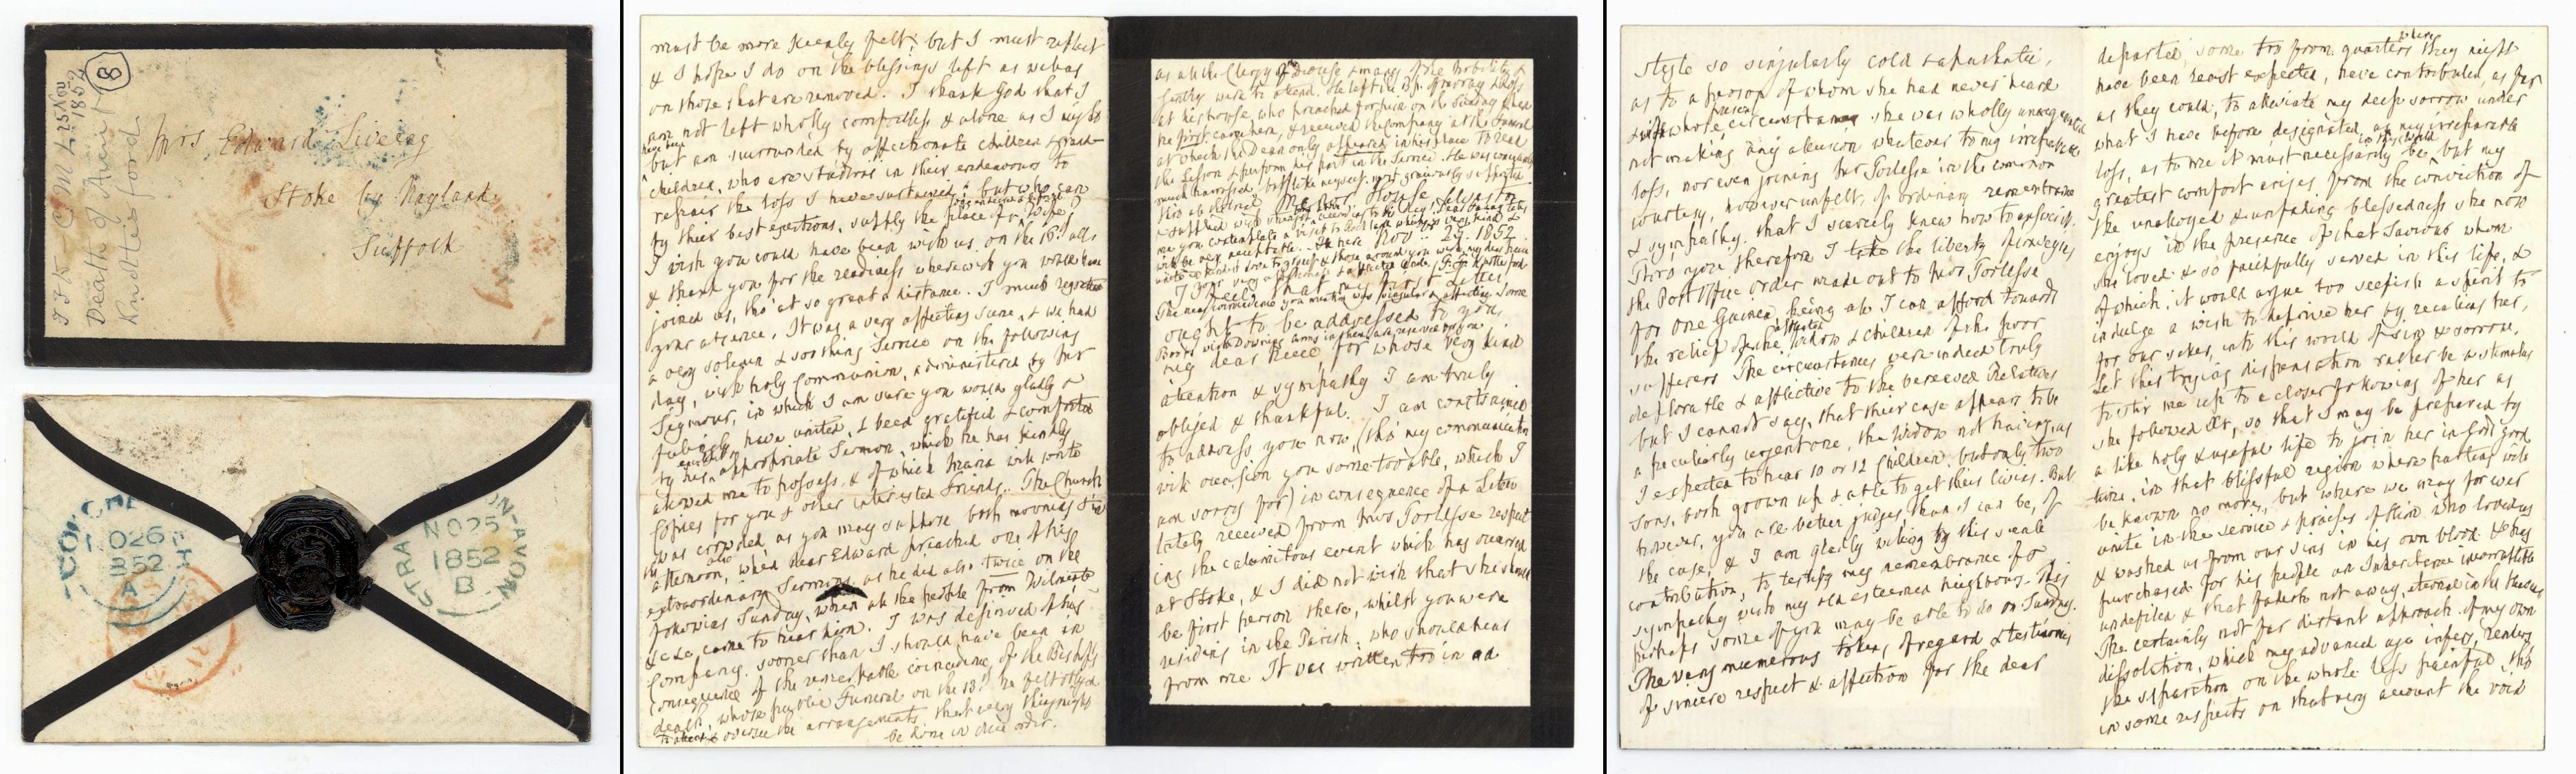 8
JJK - C M L 25 Nov
1852
Death of Aunt
Knottesford
Mrs Edward Liveing
Stoke by Nayland
Suffolk
NO 26
1852
A
STRA ON-AVON
NO 25
1852
B
must be more keenly felt; but I must reflect
& I hope I do on the blessings left as well as
on those that are removed. I thank God that I
am not left wholly comfortless & alone as I might
have been
but am surrounded by affectionate children & grand-
children, who are studious in their endeavours to
repair the loss I have sustained; but who can
by their best exertions, supply the place of a Wife?
I wish you could have been with us on the 16th ult
& thank you for the readiness wherewith you would have
joined us, tho' at so great a distance. I much regretted
your absence. It was a very affecting scene, & we had
a very solemn & soothing Service on the following
day, with holy Communion, administered by Mr
Seymour, in which I am sure you would gladly &
feelingly have united, & been gratified & comforted
by his appropriate Sermon, which he has kindly
allowed me to possess, & of which Maria will write
Copies for you & other interested friends. The Church
was crowded as you may suppose both morning &
Afternoon, when dear Edward preached one of his
extraordinary Sermons as he did also twice on the
following Sunday, when all the people from Wilmcote
&c &c. came to hear him. I was deprived of his
Company sooner than I should have been in
consequence of the remarkable coincidence of the Bishop's
death, whose public Funeral on the 18th he felt obliged
to attend & oversee the arrangements, that every thing might
be done in due order.
as all the Clergy of the Diocese & many of the Nobility &
Gentry were to attend. He left the Bp. of Moray & Ross
at his house, who preached for him on the Sunday when
he first came here, & received the company at the Funeral
at which the Dean only appeared in his place to read
the Lesson & perform his part in the Service. He was
much harrassed, but like myself, most graciously supported
thro' all
Nov 25. 1852
I feel that my first Letter
ought to be addressed to you,
my dear Niece for whose very kind
attention & sympathy I am truly
obliged & thankful. I am constrained
to address you now, (tho' my communication
will occasion you some trouble, which I
am sorry for) in consequence of a Letter
lately received from Mrs Torlesse respect
ing the calamitous event which has occurred
at Stoke, & I did not wish that she should
be first person there, whilst you were
residing in the Parish, who should hear
from me. It was written too in a
style so singularly cold & apathetic,
as to a person of whom she had never heard
& with whose present circumstances she was wholly unacquainted
not making any allusion whatever to my irreparable
loss, nor even joining Mr Torlesse in the common
courtesy, however unfelt, of ordinary remembrance
& sympathy, that I scarcely knew how to express it.
Thro' you therefore I take the liberty of conveying
the Post Office Order made out to Mrs Torlesse
for one Guinea, being all I can afford towards
the relief of the afflicted Widow & children of the poor
sufferers. The circumstances were indeed truly
deplorable & afflictive to the bereaved Relatives
but I cannot say, that their case appears to be
a peculiarly urgent one, the Widow not having, as
I expected to hear 10 or 12 Children, but only two
Sons, both grown up & able to get their living. But
however, you are better judges than I can be, of
the case, & I am gladly willing by this small
contribution, to testify my remembrance of &
sympathy with my old esteemed neighbours. This
perhaps some of you may be able to do on Sunday.
The very numerous tokens of regard & testimony
of sincere respect & affection for the dear
departed, some too from quarters where they might
have been least expected, have contributed, as far
as they could, to alleviate my deep sorrow under
what I have before designated, as my irreparable
loss, as to me it must necessarily in this world be, but my
greatest comfort arises from the conviction of
the unalloyed & unfading blessedness she now
enjoys in the presence of that Saviour whom
she loved & so faithfully served in this life, &
of which, it would argue too selfish a spirit to
indulge a wish to deprive her, by recalling her,
for our sakes, into this world of sin & sorrow.
Let this trying dispensation rather be a stimulus
to stir me up to a closer following of her as
she followed Xt, so that I may be prepared by
a like holy & useful life to join her in God's good
time, in that blissful region where parting will
be known no more, but where we may for ever
unite in the service & praises of Him who loved us
& washed us from our sins in his own blood, & has
purchased for his people an Inheritance incorruptible
undefiled & that fadeth not away, reserved in the Heavens
The certainly not far distant approach of my own
dissolution, which my advanced age infers, renders
the separation on the whole less painful, tho'
in some respects on that very account the void